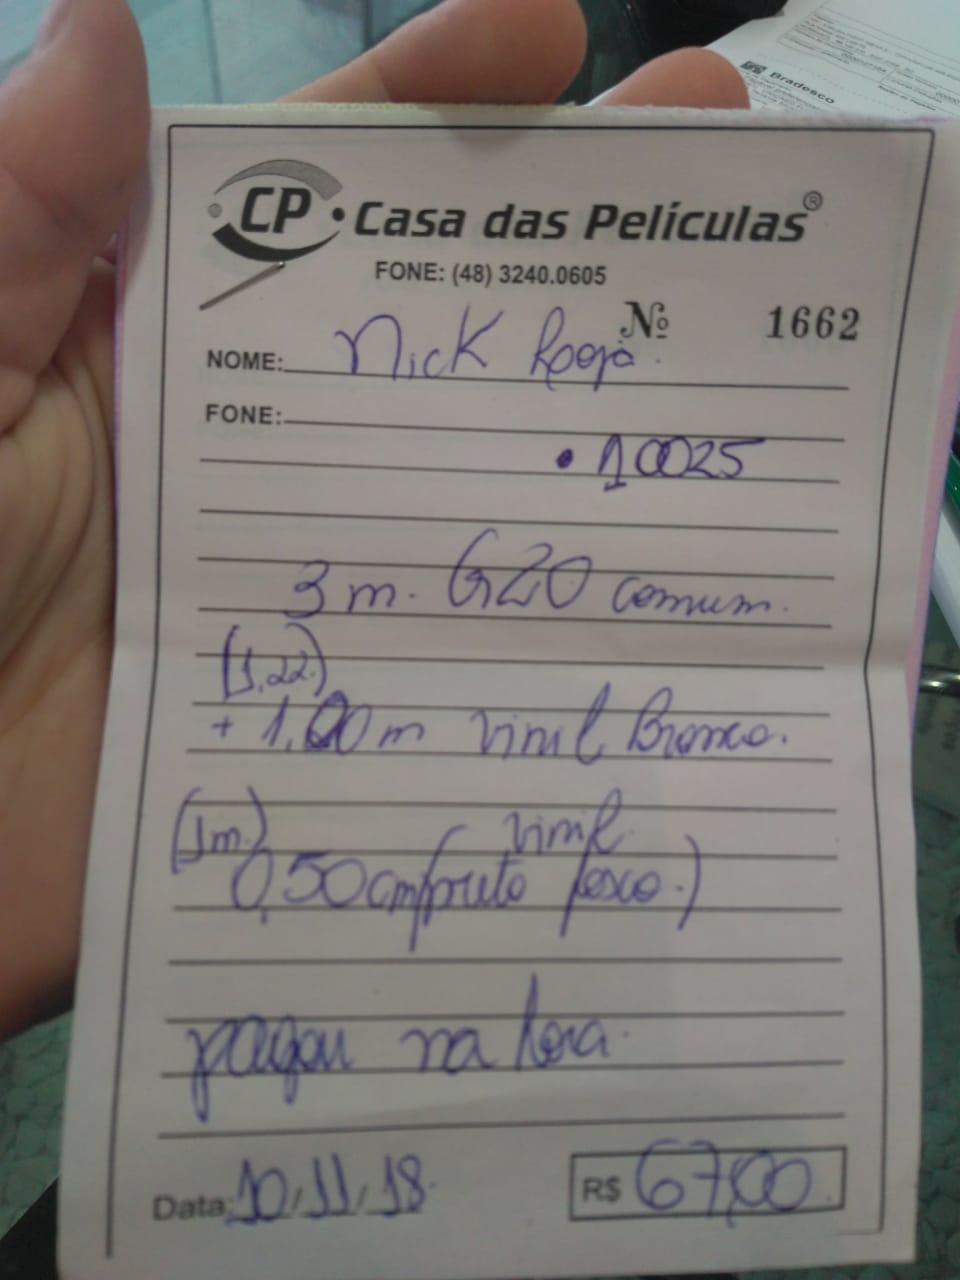 Bradesco
CP Casa das Películas®
FONE: (48) 3240.0605
Nº 1662
NOME: Nick
FONE:
• 10025
3 m. G20 comum.
(1,22)
+ 1,00 m vinil Branco.
(1m) vinil
0,50cm (preto fosco.)
pagou na hora.
Data: 10/11/18
R$ 67,00